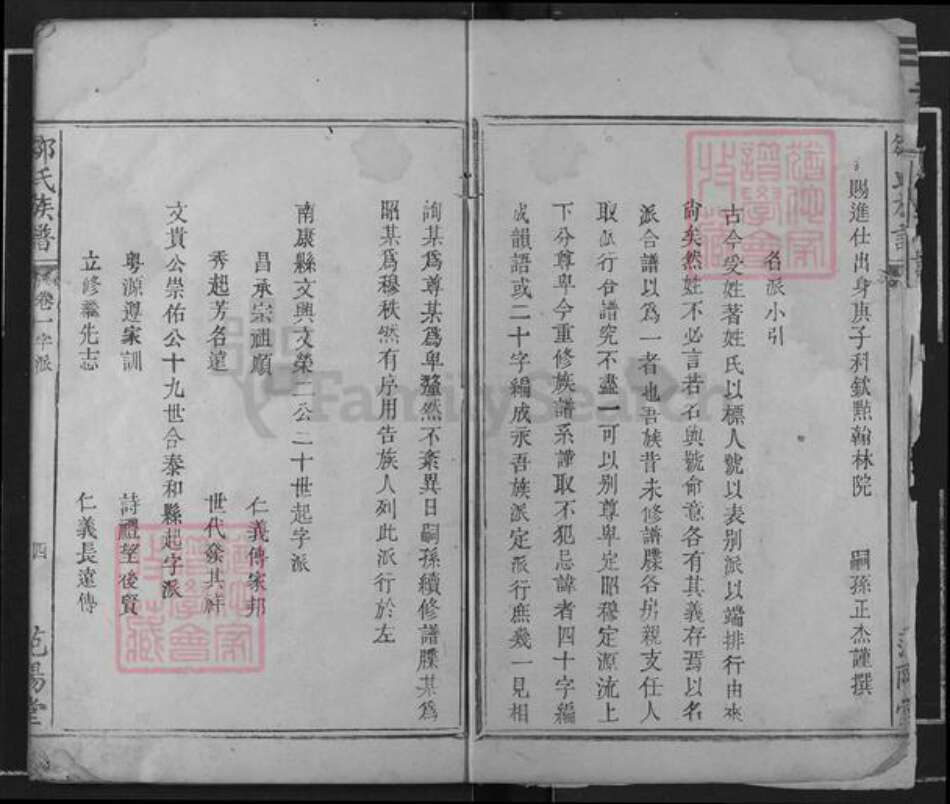 賜進仕出身庚子科欽點翰林院 嗣孫正杰謹撰
名派小引
古今受姓著姓氏以標人號以表別派以端排行由來
尚矣然姓不必言若名與號命意各有其義存焉以名
派合譜以為一者也吾族昔未修譜牒各房親支任人
取派行合譜究不盡一可以別尊卑定昭穆定源流上
下分尊卑今重修族譜系謹取不犯忌諱者四十字編
成韻語或二十字編成永吾族派定派行庶幾一見相
詢某為尊某為卑釐然不紊異日嗣孫續修譜牒某為
昭某為穆秩然有序用告族人列此派行於左
南康縣文興文榮二公二十世起字派
昌承宗祖順 仁義傳家邦
秀起芳名遠 世代發其祥
文貴公崇佑公十九世合泰和縣起字派
粵源遵家訓 詩禮望後賢
立修繼先志 仁義長遠傳
鄒氏族譜 卷一字派 四 范陽堂
FamilySearch